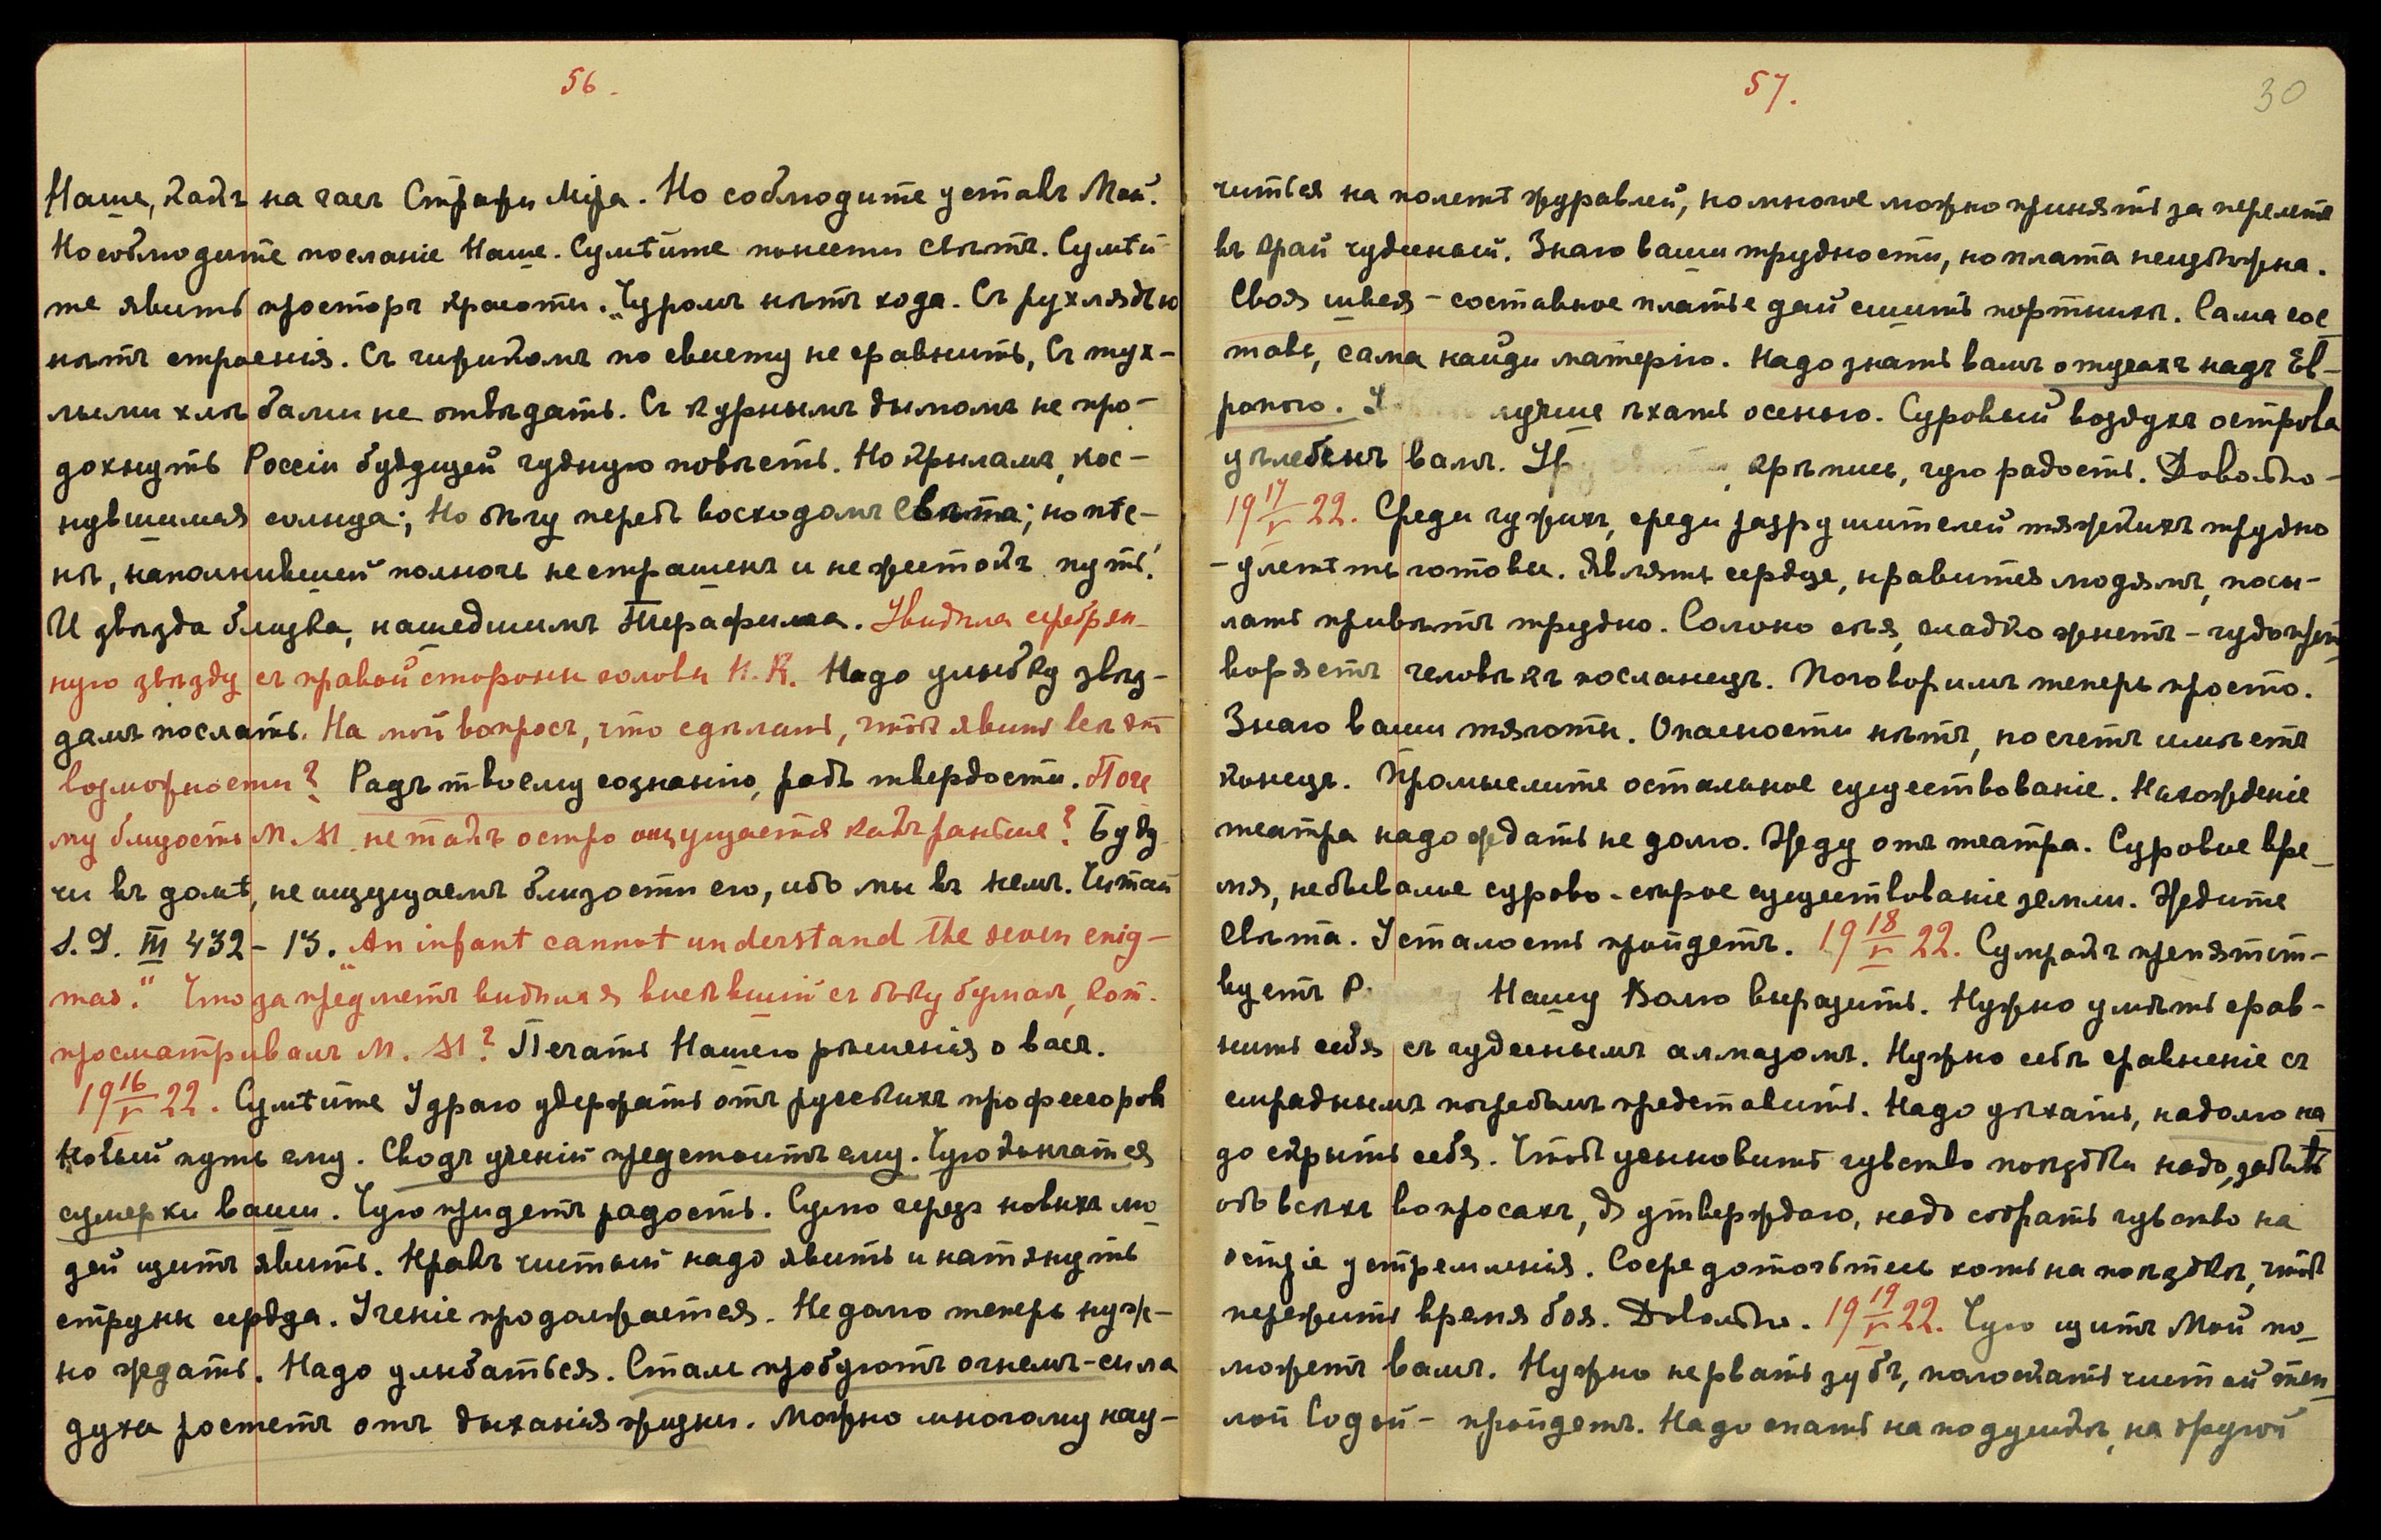 56.
Наше, какъ на часъ Стражи Міра. Но соблюдите уставъ Мой.
Но соблюдите посланіе Наше. Сумѣйте понести свѣтъ. Сумѣй-
те явить просторъ красоты. „Чурамъ нѣтъ хода. Съ рухлядью
нѣтъ строенія. Съ чижикомъ по свисту не сравнить, Съ тух-
лыми хлѣбами не отвѣдать. Съ курнымъ дымомъ не про-
дохнуть Россіи будущей чудную повѣсть. Но крыламъ, кос-
нувшимся солнца; Но бѣгу передъ восходомъ Свѣта; но пѣс-
нѣ, наполнившей полночь не страшенъ и не жестокъ путь.
И звѣзда близка, нашедшимъ Терафима. Увидѣла серебрян-
ную звѣзду съ правой стороны головы Н.К. Надо улыбку звѣз-
дамъ послать. На мой вопросъ, что сдѣлать, чтобъ явить всѣ эти
возможности? Радъ твоему сознанію, радъ твердости. Поче
му близость М.М. не такъ остро ощущается какъ раньше? Буду
чи въ домѣ, не ощущаемъ близости его, ибо мы въ немъ. Читай
S.D. III 432 - 13. „An infant cannot understand the seven enig-
mas." Что за предметъ видѣлся висѣвшій съ боку бумагъ, кот.
просматривалъ М.М.? Печать Нашего рѣшенія о васъ.
19 16/V 22. Сумѣйте Удраю удержать отъ русскихъ профессоровъ
Новый путь ему. Сводъ ученій предстоитъ ему. Чую кончатся
сумерки ваши. Чую придетъ радость. Сумю черезъ новыхъ лю
дей щитъ явить. Нравъ чистый надо явить и натянуть
струны сердца. Ученіе продолжается. Недолго теперь нуж-
но ждать. Надо улыбаться. Сталь пробуютъ огнемъ - сила
духа ростетъ отъ дыханія жизни. Можно многому нау-
57.
30
читься на полетѣ журавлей, но многое можно принять за перелетъ
въ край чудесный. Знаю ваши трудности, но плата неизбѣжна.
Своя швея - составное платье дай сшить портнихѣ. Сама сос
тавь, сама найди матерію. Надо знать вамъ о тучахъ надъ Ев-
ропою. У лучше ѣхать осенью. Суровый воздухъ острова
цѣлебенъ вамъ. , крѣпись, чую радость. Довольно -
19 17/V 22. Среди чужихъ, среди разрушителей тяжкихъ трудно
- улетѣть готовы. Являть сердце, нравится людямъ, посы-
лать привѣтъ трудно. Солоно сѣя, сладко жнетъ - чудо прет
воряетъ человѣкъ посланецъ. Поговоримъ теперь просто.
Знаю ваши тяготы. Опасности нѣтъ, но счетъ имѣетъ
конецъ. Промыслите остальное существованіе. Нахожденіе
театра надо ждать не долго. Жду отъ театра. Суровое вре-
мя, небывалое сурово-сѣрое существованіе земли. Ждите
Свѣта. Усталость пройдетъ. 19 18/V 22. Сумракъ препятст-
вуетъ Р. Нашу Волю выразить. Нужно умѣть срав-
нить себя съ чудеснымъ алмазомъ. Нужно себѣ сравненіе съ
смраднымъ погребомъ представить. Надо уѣхать, надолго на
до скрыть себя. Чтобъ установить чувство поѣздки надо, забыть
объ всѣхъ вопросахъ, Я утверждаю, надо собрать чувство на
остріе устремленія. Сосредоточьтесь хоть на поѣздкѣ, чтобъ
пережить время боя. Довольно. 19 19/V 22. Чую щитъ Мой по-
можетъ вамъ. Нужно не рвать зубъ, полоскать чистой теп
лой Содой - пройдетъ. Надо спать на подушкѣ, на другой